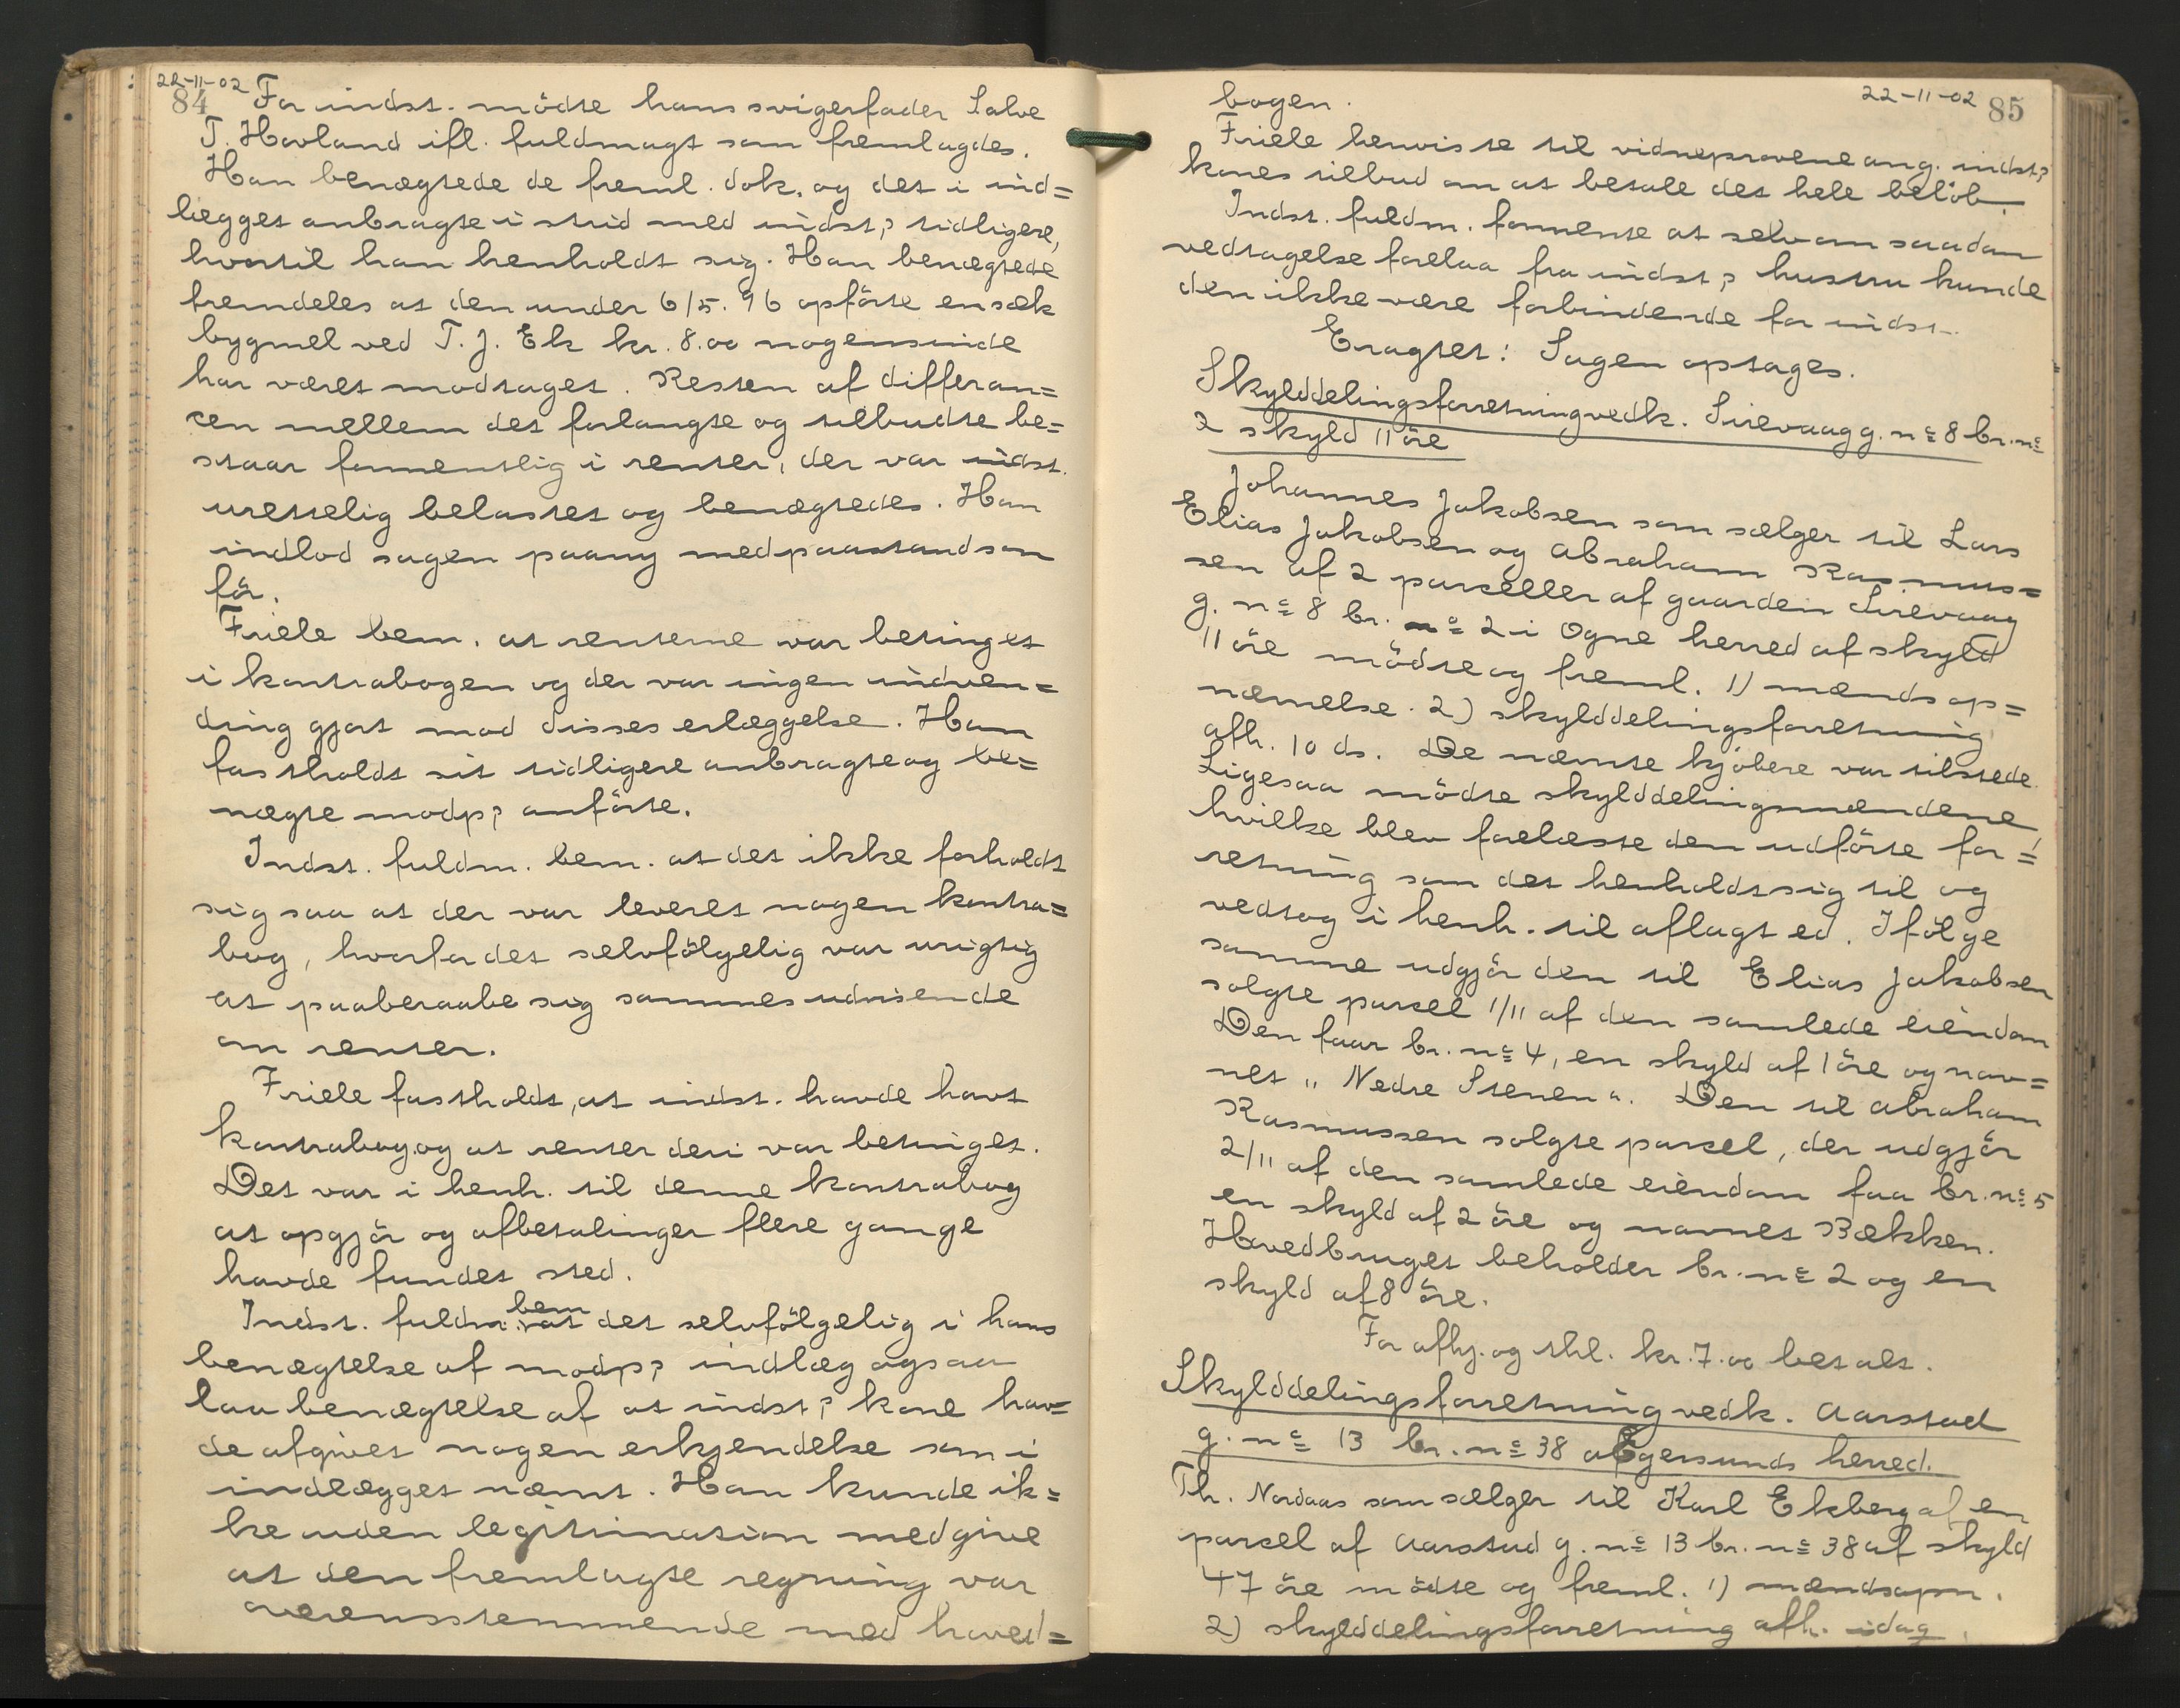 22-11-02
84
For indst. mödte hans svigerfader Salve
T. Hovland ifl. fuldmagt som fremlagdes.
Han benægtede de freml. dok. og det i ind=
lægget anbragte i strid med indst; tidligere,
hvortil han henholdt sig. Han benægtede
fremdeles at den under 6/5. 96 opförte en sæk
bygmel ved T. J. Ek kr. 8.00 nogensinde
har været modtaget. Resten af differan=
cen mellem det forlangte og tilbudte be=
staar formentlig i renter, der var indst.
uretteIig belastet og benægtedes. Han
indlod sagen paany med paastand som
för.
Friele bem. at renterne var betinget
i kontrabogen og der var ingen indven=
ding gjort mod disses erlæggelse. Han
fastholdt sit tidligere anbragte og be=
nægte modp; anförte.
Indst. fuldm. bem. at det ikke forholdt
sig saa at der var leveret nogen kontra=
bog, hvorfor det selvfölgelig var urigtig
at paaberaabe sig sammes udvisende
om renter.
Friele fastholdt, at indst. havde havt
kontrabog og at renter deri var betinget.
Det var i henh. til denne kontrabog
at opgjör og afbetalinger flere gange
havde fundet sted.
Indst. fuldm. bem. at det selvfölgelig i hans
benægtelse af modp; indlæg ogsaa
laa benægtelse af at indst; kone hav=
de afgivet nogen erkjendelse som i
indlægget nævnt. Han kunde ik=
ke uden legitimation medgive
at den fremlagte regning var
overensstemmende med hoved=
22-11-02
85
bogen.
Friele henviste til vidneprovene ang. indst;
kones tilbud om at betale det hele belöb.
Indst. fuldm. formente at selv om saadan
vedtagelse forelaa fra indst; hustru kunde
den ikke være forbindende for indst.
Eragtet: Sagen optages.
Skylddelingsforretning vedk. Sirevaag g. no 8 br. no
2 skyld 11 öre
Johannes Jakobsen som sælger til Lars
Elias Jakobsen og Abraham Rasmus=
sen af 2 parceller af gaarden Sirevaag
g. no 8 br. no 2 i Ogne herred af skyld
11 öre mödte og freml. 1) mænds op=
nævnelse. 2) skylddelingsforretning
afh. 10 ds. De nævnte kjöbere var tilstede.
Ligesaa mödte skylddelingsmændene,
hvilke blev forelæste den udförte for=
retning som det henholdt sig til og
vedtog i henh. til aflagt ed. Ifölge
samme udgjör den til Elias Jakobsen
solgte parsel 1/11 af den samlede eiendom
Den faar br. no 4, en skyld af 1 öre og nav=
net „Nedre Stenen“. Den til Abraham
Rasmussen solgte parsel, der udgjör
2/11 af den samlede eiendom faa br. no 5
en skyld af 2 öre og navnet Bækken.
Hovedbruget beholder br. no 2 og en
skyld af 8 öre.
For afhj. og thl. kr. 7.00 betalt.
Skylddelingsforretning vedk. Aarstad
g. no 13 br. no 38 af Egersunds herred.
Th. Nordaas som sælger til Karl Ekberg af en
parsel af Aarstad g. no 13 br. no 38 af skyld
47 öre mödte og freml. 1) mændsopn.
2) skylddelingsforretning afh. idag.